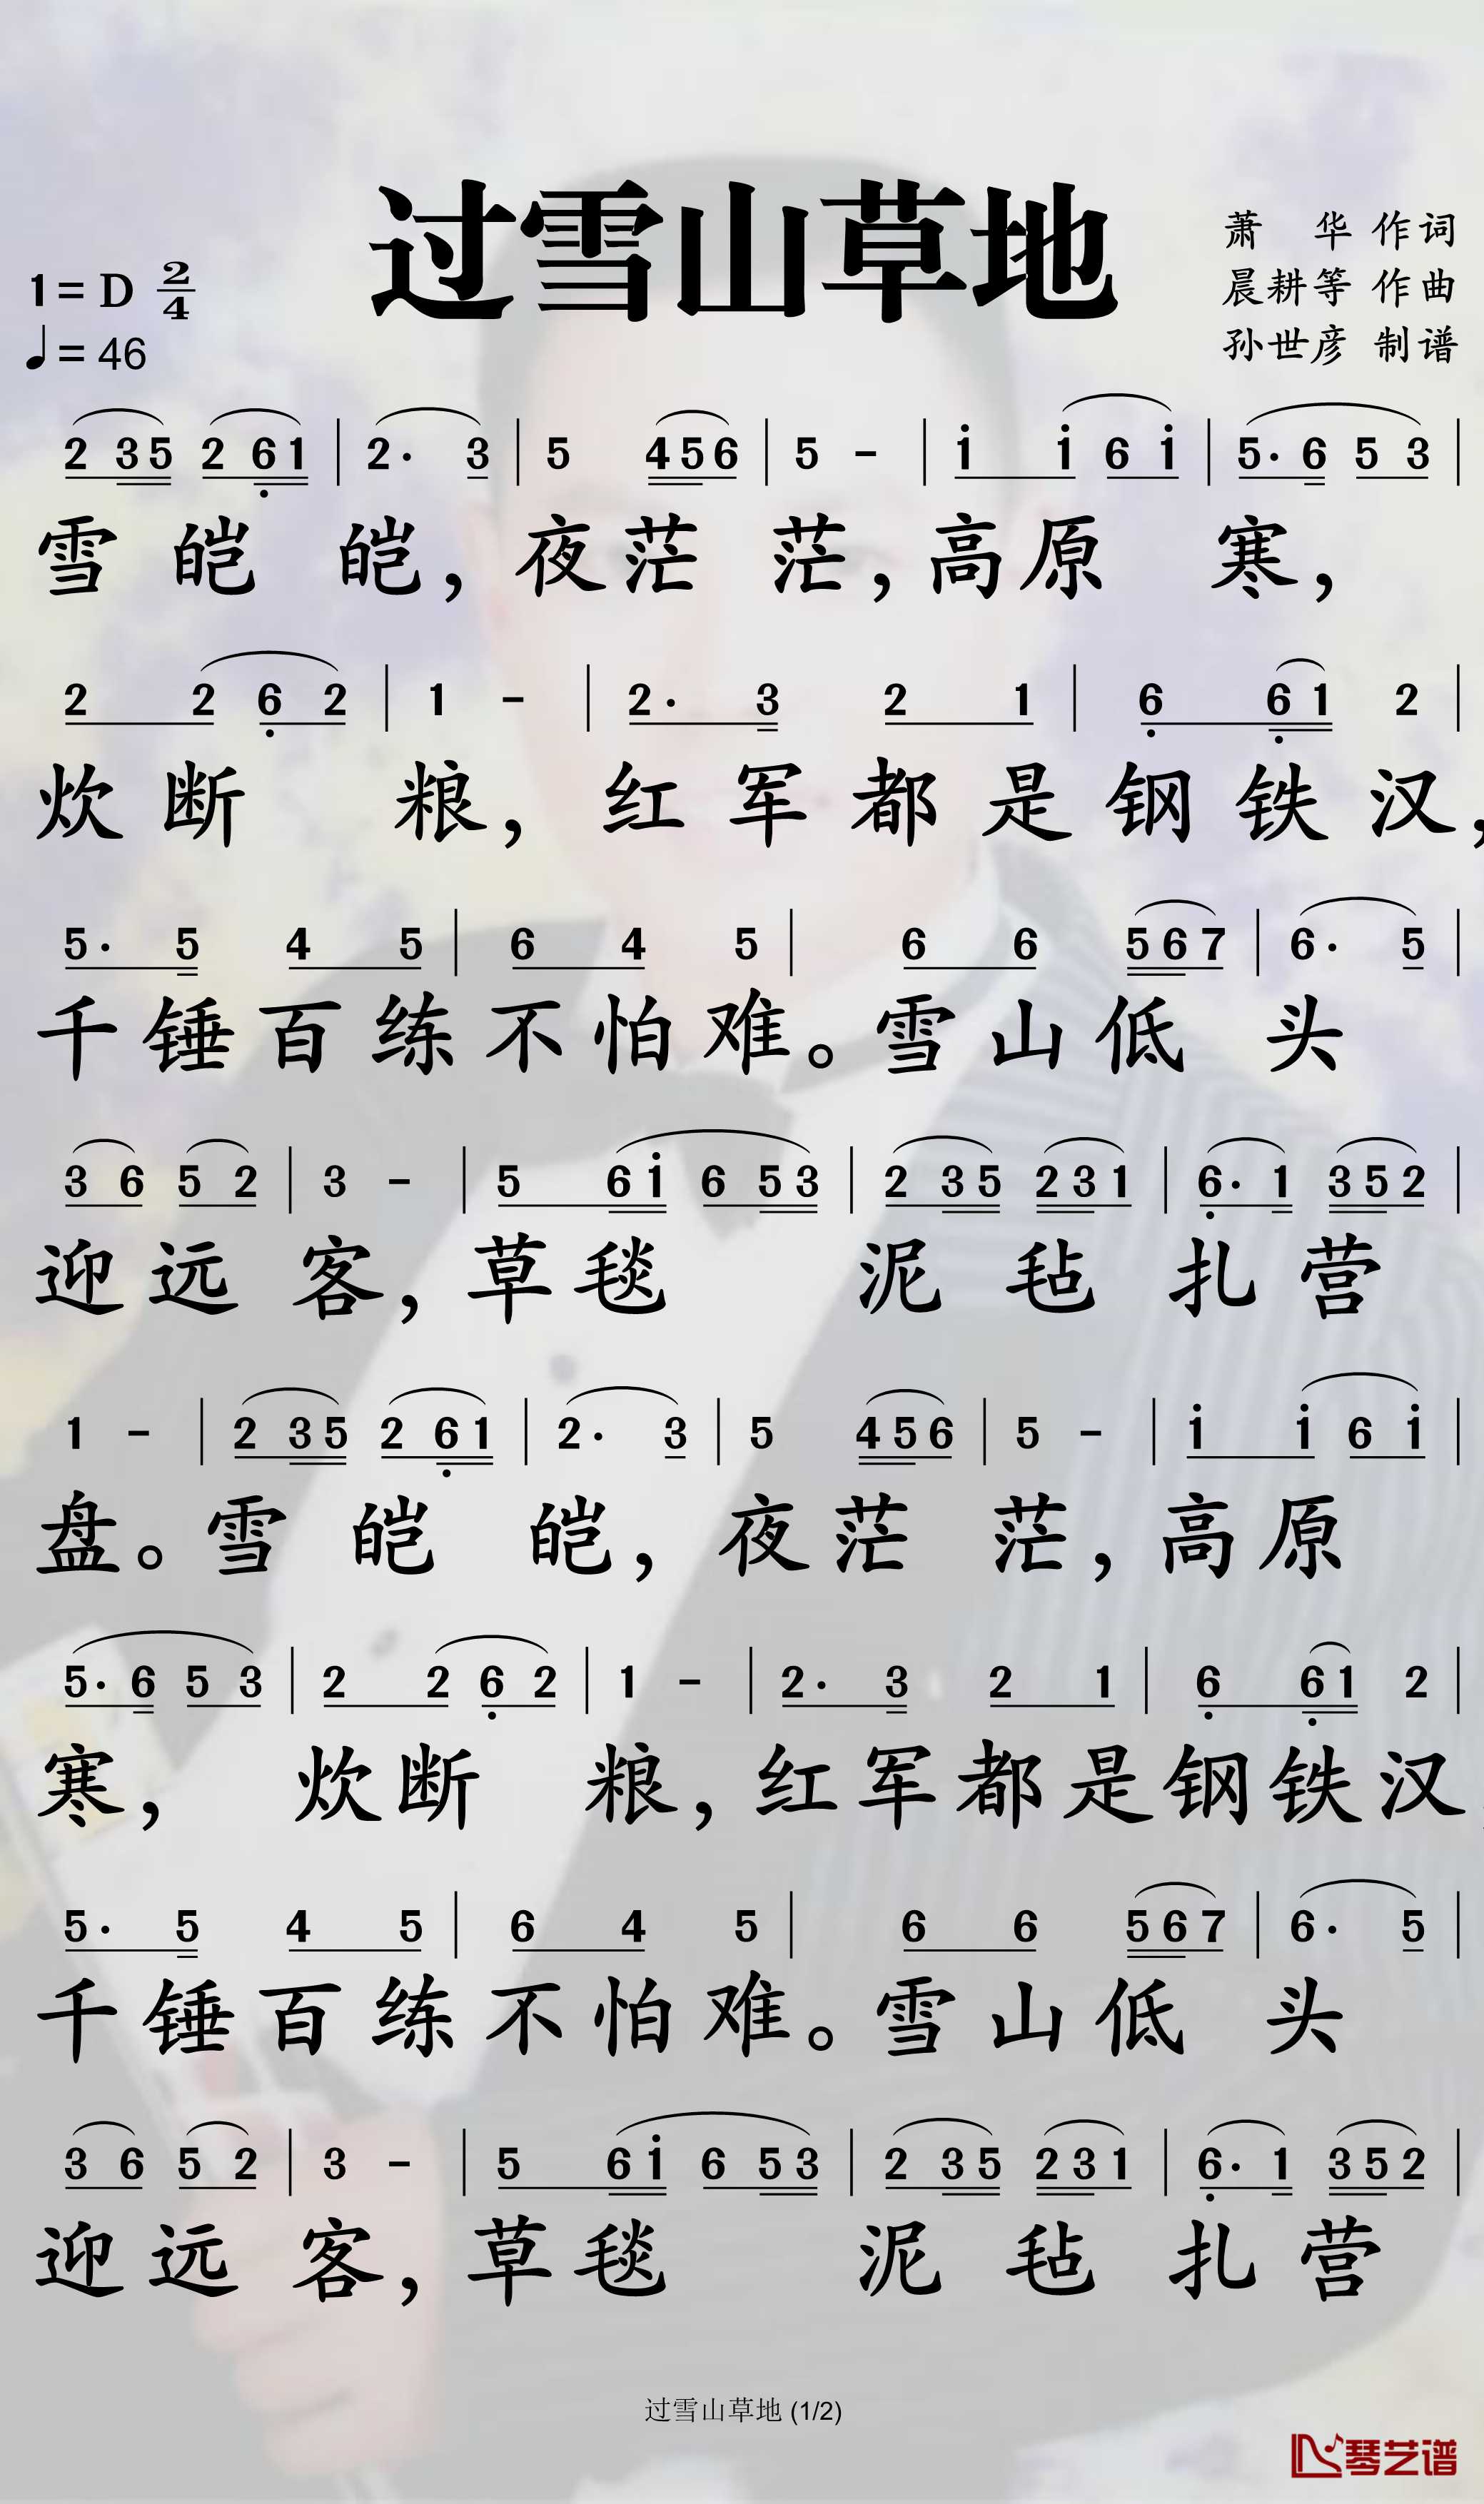 过雪山草地
萧 华 作词
晨耕等 作曲
孙世彦 制谱
1=D 2/4
♩=46
2 3 5 2 6̣ 1 | 2· 3 | 5 4 5 6 | 5 - | i̇ i̇ 6 i̇ | 5· 6 5 3 |
雪皑皑，夜茫茫，高原寒，
2 2 6̣ 2 | 1 - | 2· 3 2 1 | 6̣ 6̣ 1 2 |
炊断粮，红军都是钢铁汉，
5· 5 4 5 | 6 4 5 | 6 6 5 6 7 | 6· 5 |
千锤百练不怕难。雪山低头
3 6 5 2 | 3 - | 5 6 i̇ 6 5 3 | 2 3 5 2 3 1 | 6̣· 1 3 5 2 |
迎远客，草毯泥毡扎营
1 - | 2 3 5 2 6̣ 1 | 2· 3 | 5 4 5 6 | 5 - | i̇ i̇ 6 i̇ |
盘。雪皑皑，夜茫茫，高原
5· 6 5 3 | 2 2 6̣ 2 | 1 - | 2· 3 2 1 | 6̣ 6̣ 1 2 |
寒，炊断粮，红军都是钢铁汉，
5· 5 4 5 | 6 4 5 | 6 6 5 6 7 | 6· 5 |
千锤百练不怕难。雪山低头
3 6 5 2 | 3 - | 5 6 i̇ 6 5 3 | 2 3 5 2 3 1 | 6̣· 1 3 5 2 |
迎远客，草毯泥毡扎营
过雪山草地 (1/2)
琴艺谱